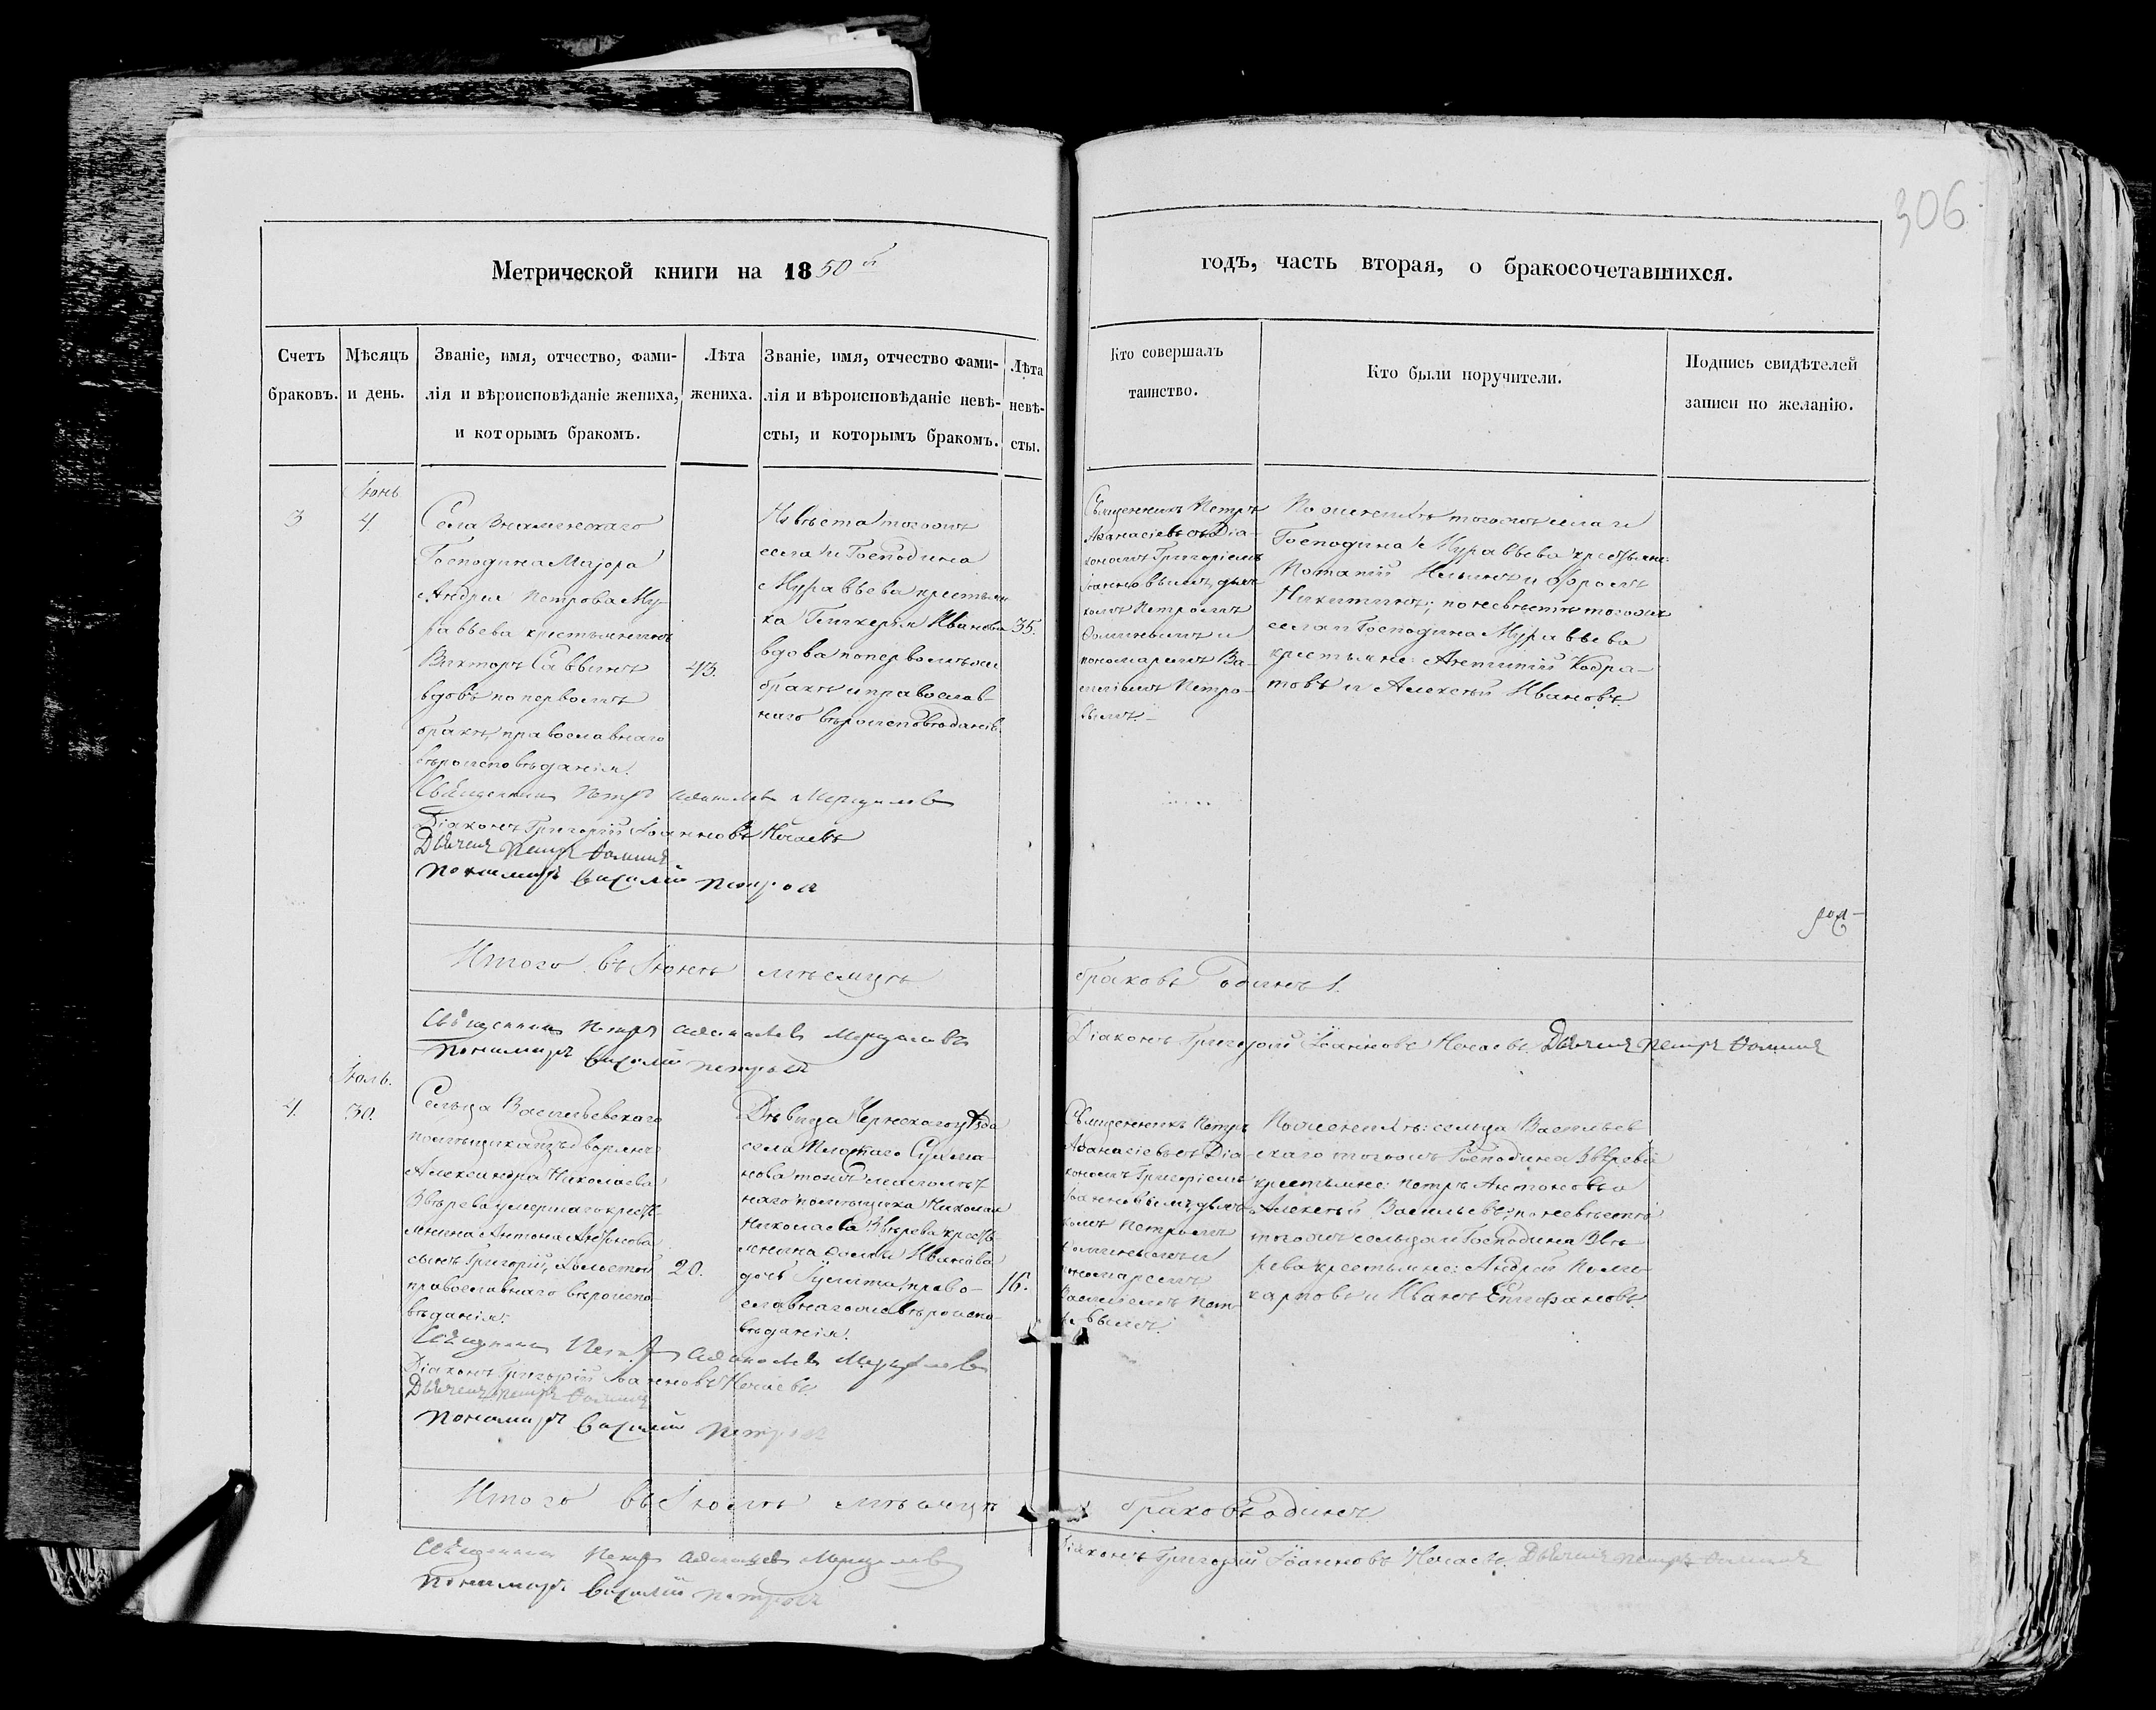 306
Метрической книги на 1850й
годъ, часть вторая, о бракосочетавшихся.
Счетъ
браковъ.
Мѣсяцъ
и день.
Званіе, имя, отчество, фами-
лія и вѣроисповѣданіе жениха,
и которымъ бракомъ.
Лѣта
жениха.
Званіе, имя, отчество фами-
лія и вѣроисповѣданіе невѣ-
сты, и которымъ бракомъ.
Лѣта
невѣ-
сты.
Кто совершалъ
таинство.
Кто были поручители.
Подпись свидѣтелей
записи по желанію.
3
Іюнь
4.
Села Знаменскаго
Господина Маіора
Андрея Петрова Му-
равьева крестьянинъ
Викторъ Саввинъ
вдовъ по первомъ
бракѣ, православнаго
вѣроисповѣданія.
43.
Невѣста тогожъ
села и Господина
Муравьева крестьян
ка Гликерья Иванова
вдова по первомъ же
бракѣ и православ-
наго вѣроисповѣданія
35.
Священникъ Петръ
Аѳанасіевъ съ Діа-
кономъ Григоріемъ
Іоанновымъ, дьяч-
комъ Петромъ
Ѳоминымъ и
пономаремъ Ва-
силіемъ Петро-
вымъ.
По женихѣ тогожъ села и
Господина Муравьева крестьяне:
Потапій Ильинъ и Ефремъ
Никитинъ; по невѣстѣ тогожъ
села и Господина Муравьева
крестьяне: Антипій Кодра-
товъ и Алексѣй Ивановъ.
Священникъ Петръ Аѳанасьевъ Мерцаловъ
Діаконъ Григорій Іоанновъ Нечаевъ
Дьячекъ Петръ Ѳоминъ
Пономарь Василій Петровъ
Итого въ Іюнѣ мѣсяцѣ
браковъ одинъ 1.
Священникъ Петръ Аѳанасьевъ Мерцаловъ
Пономарь Василій Петровъ
Діаконъ Григорій Іоанновъ Нечаевъ. Дьячекъ Петръ Ѳоминъ
4.
Іюль.
30.
Сельца Васильевскаго
помѣщика изъ дворянъ
Александра Николаева
Звѣрева умершаго кресть-
янина Антона Антонова
сынъ Григорій, холостой
православнаго вѣроиспо-
вѣданія.
20.
Дѣвица Чернскаго уѣзда
села
нова тожъ
наго помѣщика Николая
Николаева Звѣрева кресть-
янина Ѳомы Иванова
дочь Іулитта, право-
славнаго же вѣроиспо-
вѣданія.
16.
Священникъ Петръ
Аѳанасіевъ съ Діа-
кономъ Григоріемъ
Іоанновымъ, дьяч-
комъ Петромъ
Ѳоминымъ и
пономаремъ
Василіемъ Пет-
ровымъ.
По женихѣ: сельца Васильев
скаго тогожъ Господина Звѣрева
крестьяне: Петръ Антоновъ и
Алексѣй Васильевъ; по невѣстѣ
тогожъ сельца и Господина Звѣ
рева крестьяне: Андрей Поли-
карповъ и Иванъ Епифановъ.
Священникъ Петръ Аѳанасьевъ Мерцаловъ
Діаконъ Григорій Іоанновъ Нечаевъ.
Дьячекъ Петръ Ѳоминъ
Пономарь Василій Петровъ
Итого въ Іюлѣ мѣсяцѣ
браковъ одинъ
Священникъ Петръ Аѳанасьевъ Мерцаловъ
Пономарь Василій Петровъ
Діаконъ Григорій Іоанновъ Нечаевъ. Дьячекъ Петръ Ѳоминъ